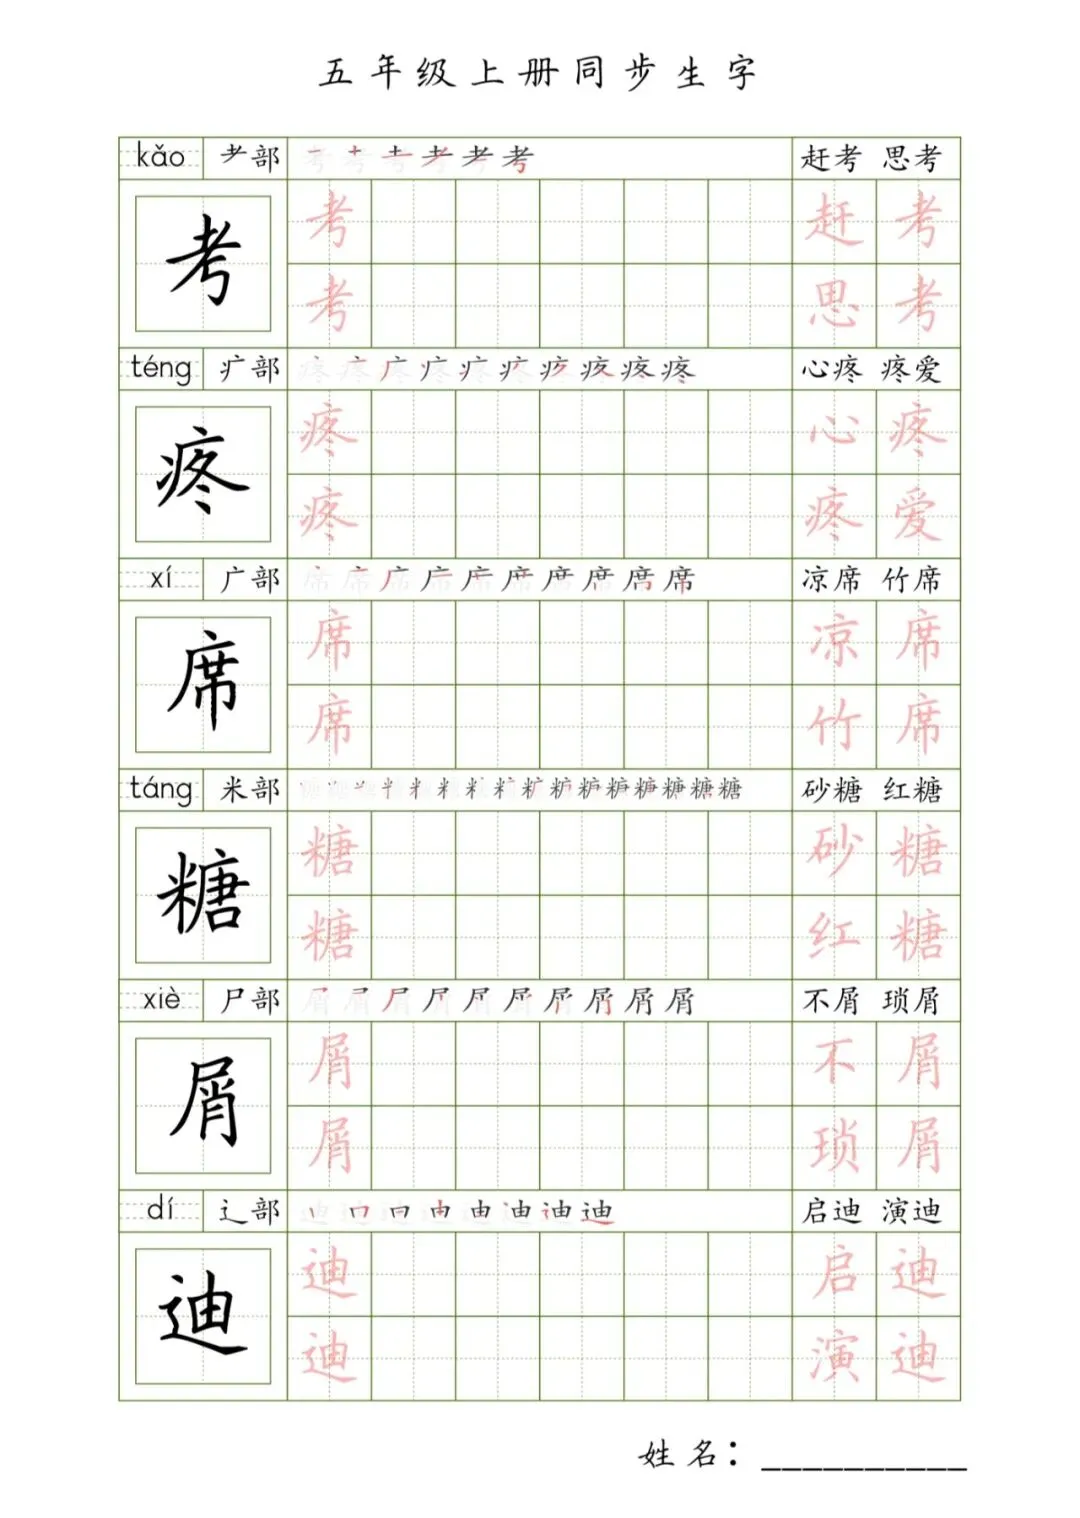 五年级上册同步生字
kǎo 耂部 考 考 考 考 考 考 赶考 思考
考 考 赶考
考 思考
téng 疒部 疼 疼 疼 疼 疼 疼 疼 疼 疼 疼 心疼 疼爱
疼 疼 心疼
疼 疼爱
xí 广部 席 席 席 席 席 席 席 席 席 席 凉席 竹席
席 席 凉席
席 竹席
táng 米部 糖 糖 糖 糖 糖 糖 糖 糖 糖 糖 糖 糖 糖 糖 糖 糖 砂糖 红糖
糖 糖 砂糖
糖 红糖
xiè 尸部 屑 屑 屑 屑 屑 屑 屑 屑 屑 屑 不屑 琐屑
屑 屑 不屑
屑 琐屑
dí 辶部 迪 迪 迪 迪 迪 迪 迪 迪 启迪 演迪
迪 迪 启迪
迪 演迪
姓名：__________